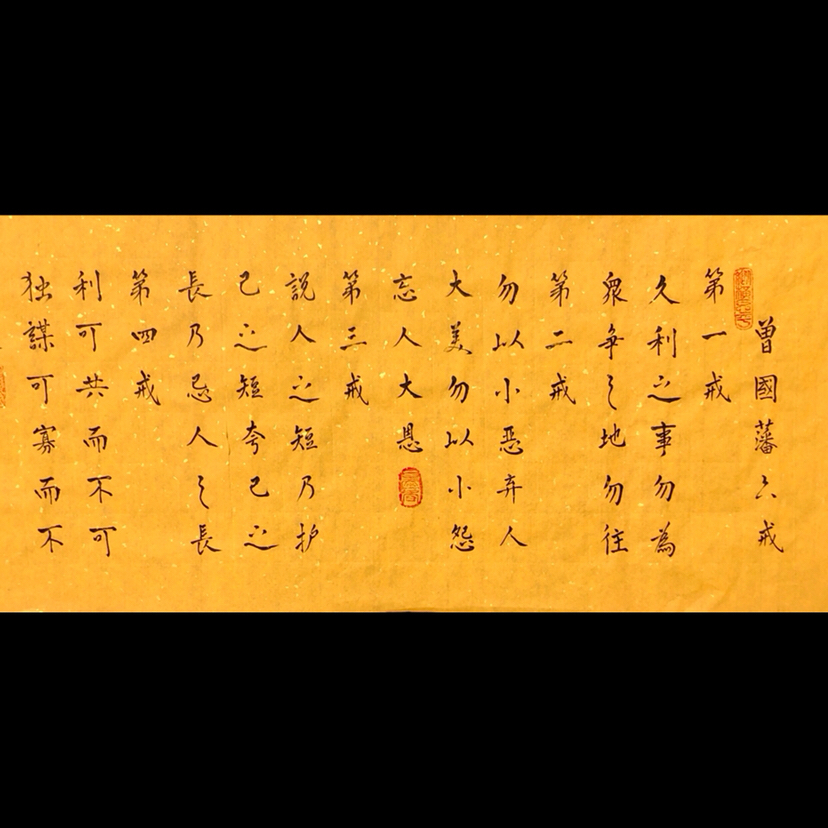 曾國藩六戒
第一戒
久利之事勿為
衆争之地勿往
第二戒
勿以小惡弃人
大美勿以小怨
忘人大恩
第三戒
説人之短乃护
己之短夸己之
長乃忌人之長
第四戒
利可共而不可
独謀可寡而不